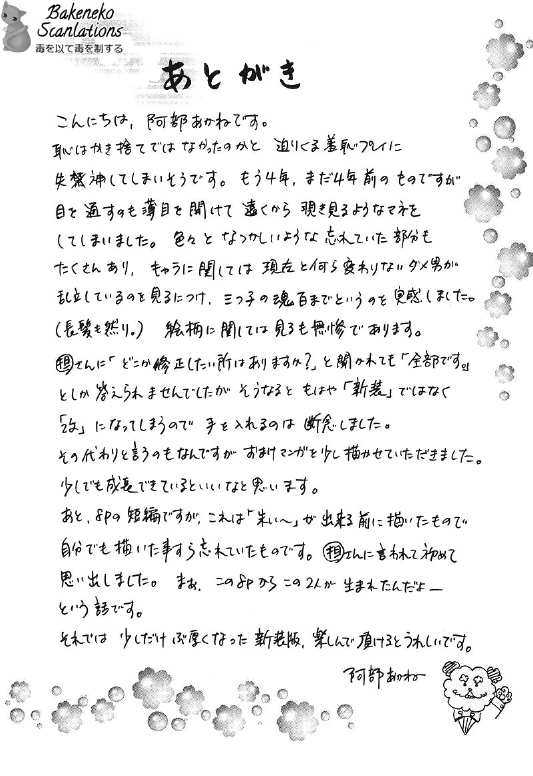 Bakeneko
Scanlations
毒を以て毒を制する
あとがき
こんにちは，阿部あかねです。
恥はかき捨てではなかったのかと 迫りくる羞恥プレイに
失禁神してしまいそうです。もう4年，まだ4年前のものですが
目を通すのも薄目を開けて 遠くから 覗き見るようなマネを
してしまいました。色々と なつかしいような 忘れていた 部分も
たくさんあり，キャラに関しては 現在と何ら変わりないダメ男が
乱立しているのを見るにつけ，三つ子の魂百までというのを実感しました。
（長髪も然り。） 絵柄に関しては見るも無惨であります。
担さんに「どこか修正したい所はありますか？」と聞かれても「全部です。」
としか 答えられませんでしたが そうなると もはや「新装」ではなく
「改」になってしまうので 手を入れるのは 断念しました。
その代わりと言うのもなんですが おまけマンガを少し描かせていただきました。
少しでも成長できているといいなと思います。
あと、8Pの短編ですが，これは「朱い〜」が出来る前に描いたもので
自分でも描いた事すら忘れていたものです。担さんに言われて初めて
思い出しました。まぁ，この8Pからこの2人が生まれたんだよー
という話です。
それでは 少しだけ ぶ厚くなった 新装版，楽しんで頂けるとうれしいです。
阿部あかね